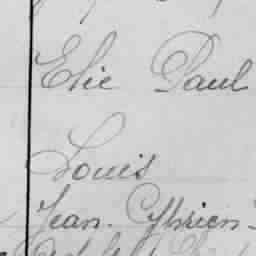 Elie Paul
Louis
Jean-Cyhrien-